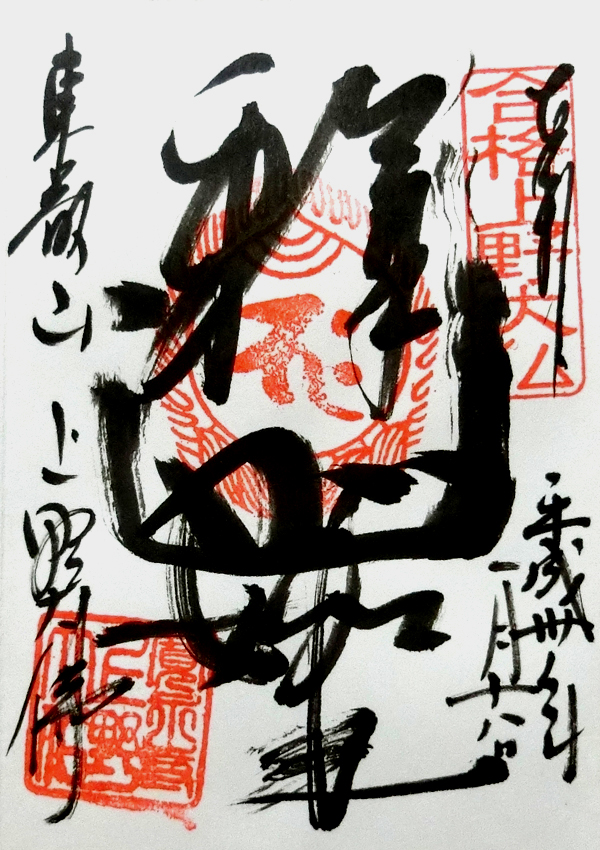 奉拝
合格上野大仏
平成卅年
一月十八日
釋迦如来
東叡山 上野大佛
寛永寺
上野
大佛